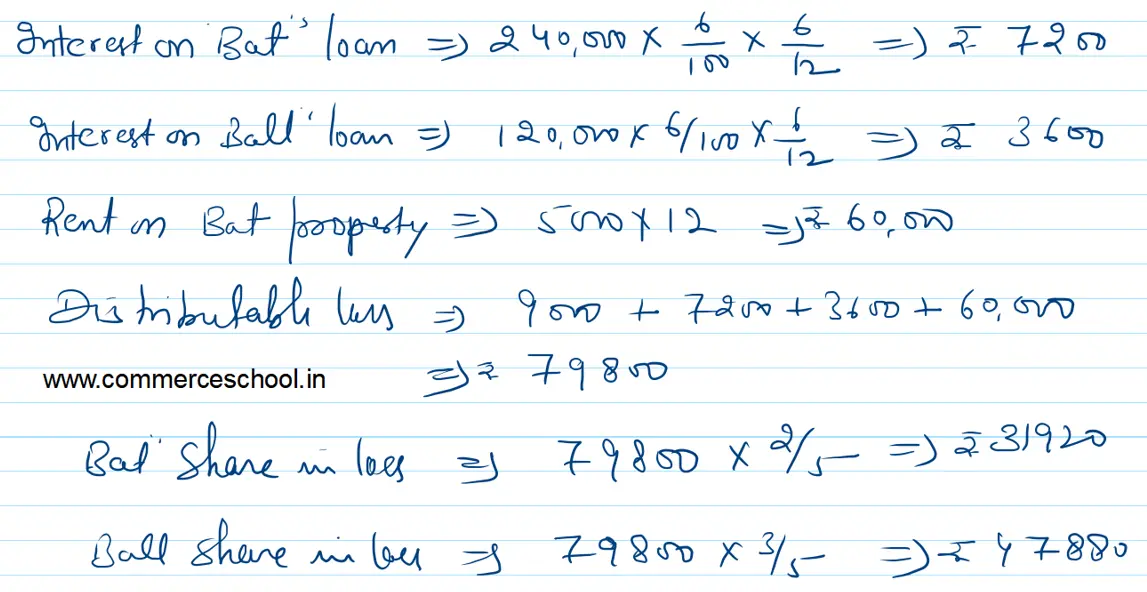 Interest on Bat's loan => 240,000 × 6/100 × 6/12 => ₹ 7200
Interest on Ball' loan => 120,000 × 6/100 × 6/12 => ₹ 3600
Rent on Bat property => 5000 × 12 => ₹ 60,000
Distributable loss => 9000 + 7200 + 3600 + 60,000
www.commerceschool.in => ₹ 79800
Bat' share in loss => 79800 × 2/5 => ₹ 31920
Ball share in loss => 79800 × 3/5 => ₹ 47880